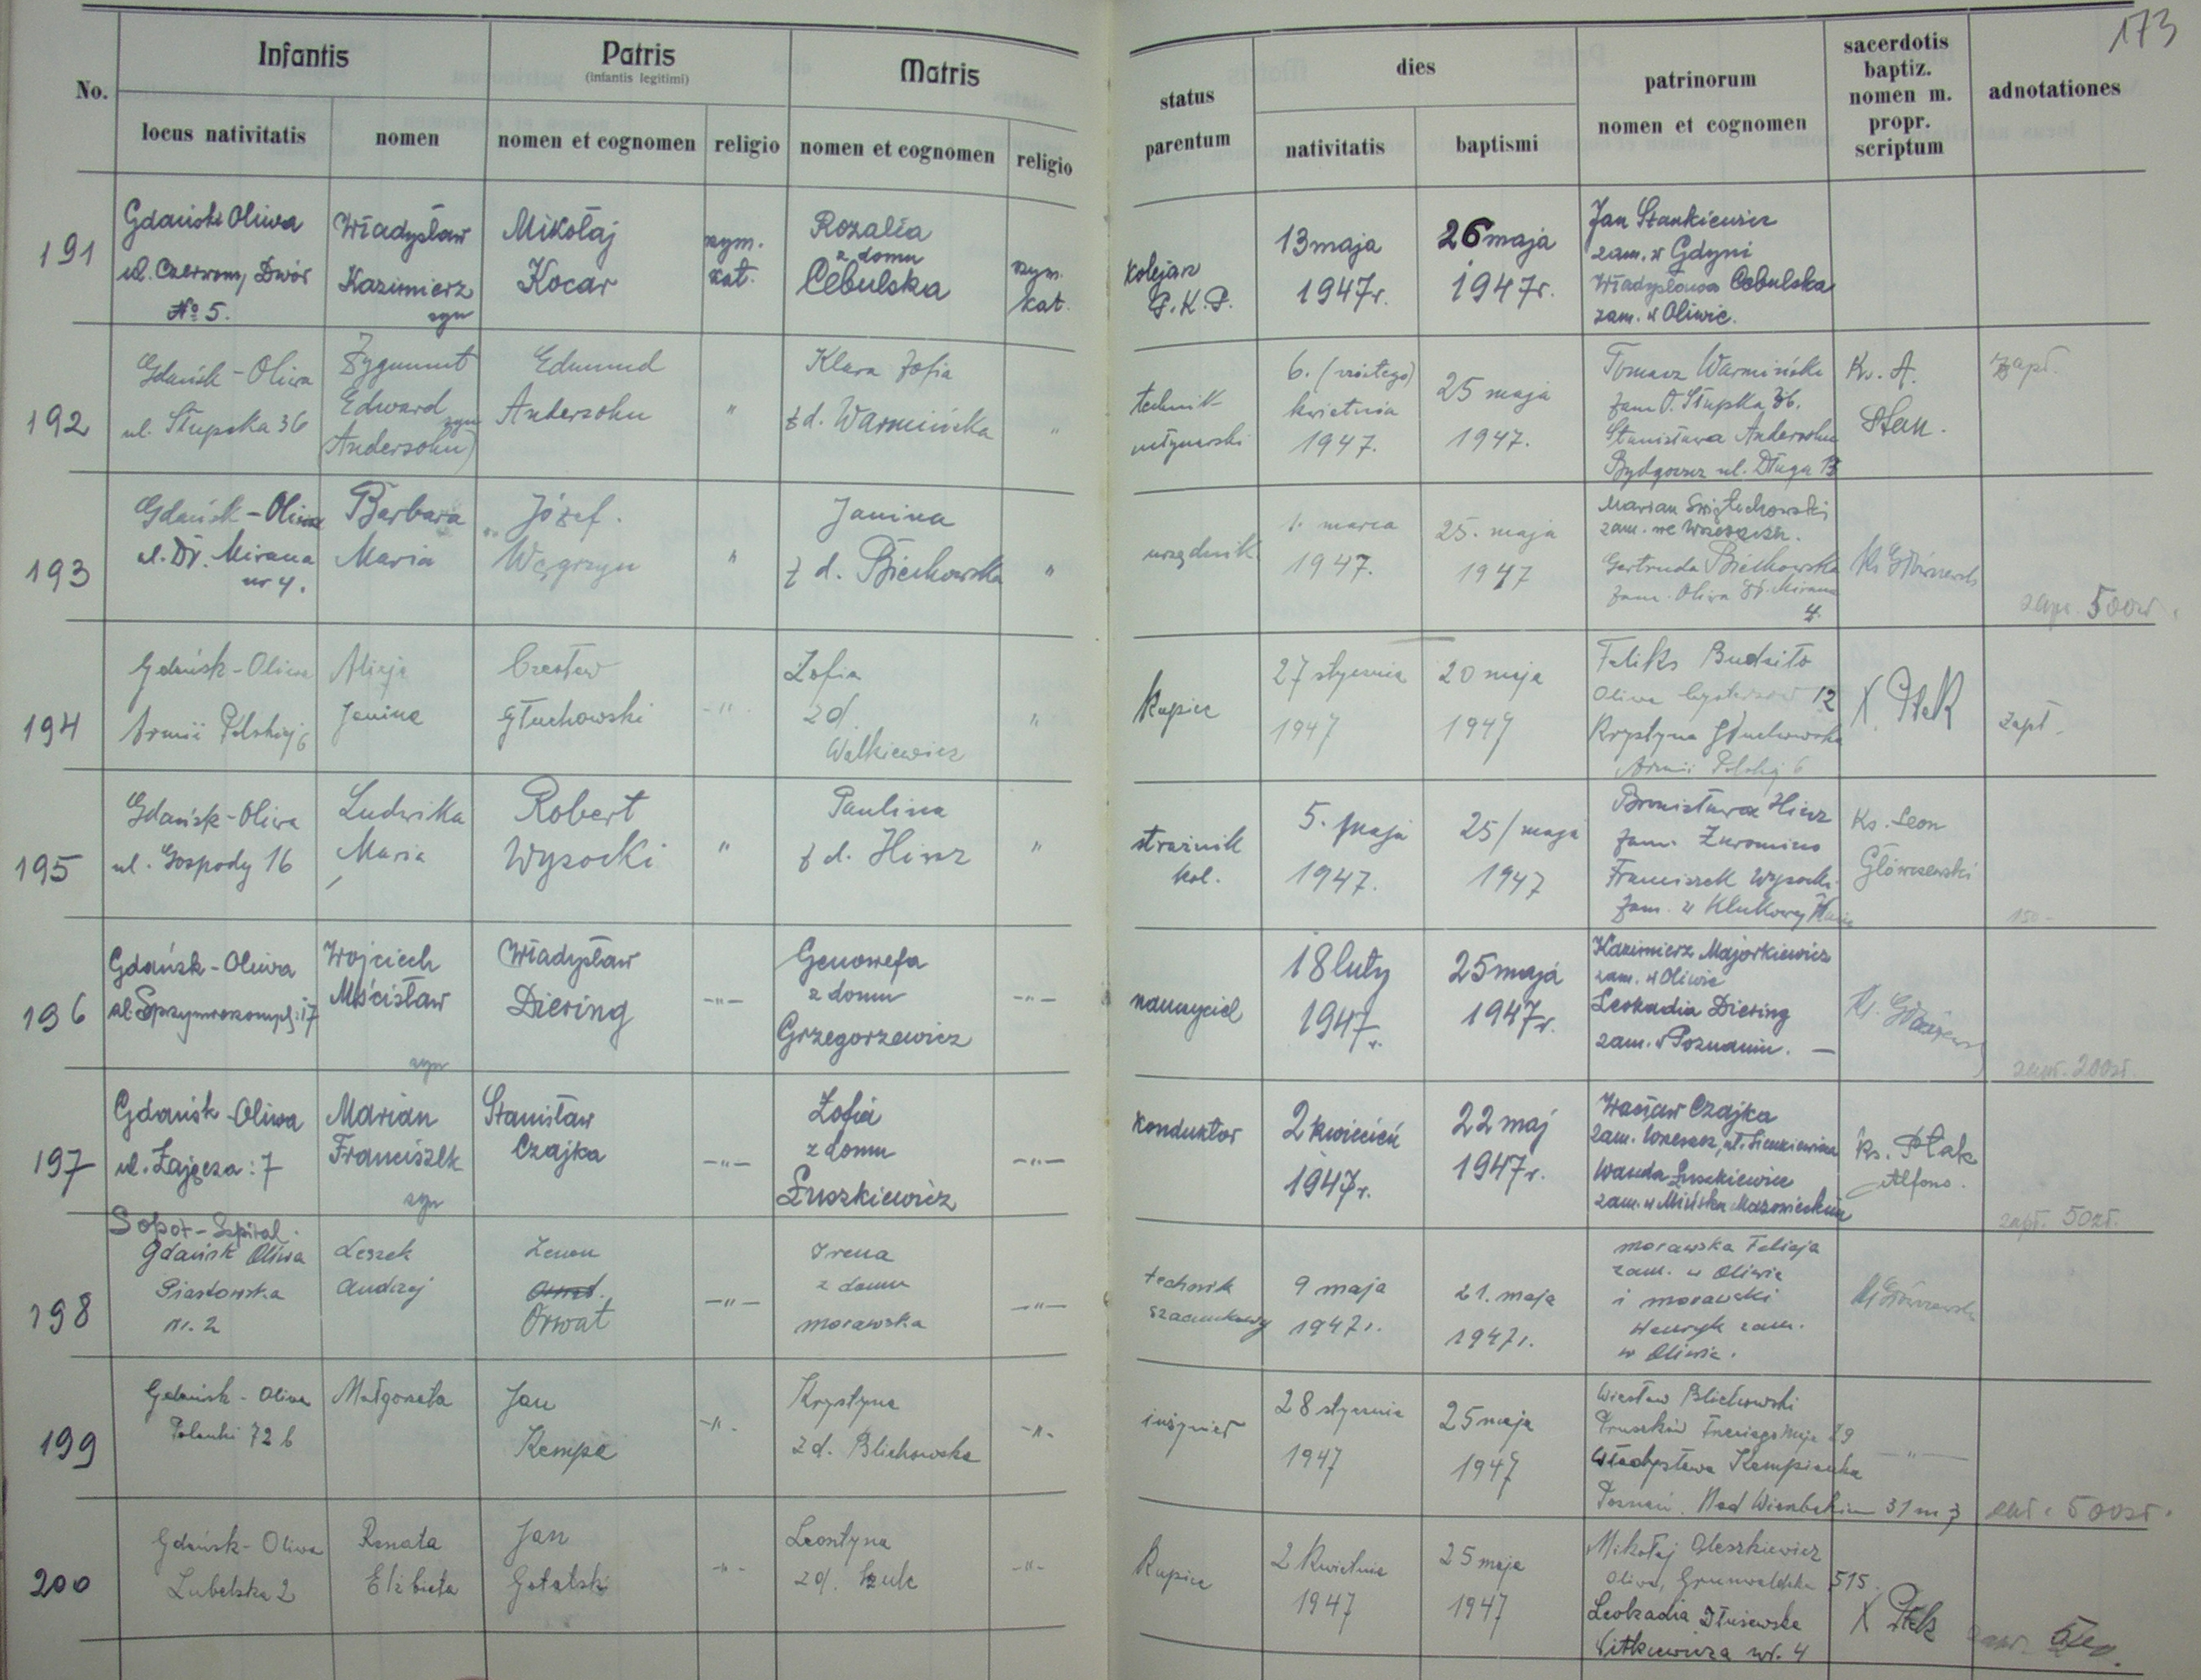 173
No.
Infantis
Patris
(infantis legitimi)
Matris
locus nativitatis
nomen
nomen et cognomen
religio
nomen et cognomen
religio
status
parentum
dies
nativitatis
baptismi
patrinorum
nomen et cognomen
sacerdotis
baptiz.
nomen m.
propr.
scriptum
adnotationes
191
Gdańsk Oliwa
ul. Czerwony Dwór
№ 5.
Władysław
Kazimierz
syn
Mikołaj
Kocar
rzym.
kat.
Rozalia
z domu
Cebulska
rzym.
kat.
kolejarz
P.K.P.
13 maja
1947r.
26 maja
1947r.
Jan Stankiewicz
zam. w Gdyni
Władysława Cebulska
zam. w Oliwie.
192
Gdańsk - Oliwa
ul. Słupska 36
Zygmunt
Edward
syn
(Andersohn)
Edmund
Andersohn
"
Klara Zofia
z d. Warmińska
"
technik
młynarski
6. (szóstego)
kwietnia
1947.
25 maja
1947.
Tomasz Warmiński
zam O. Słupska 36.
Stanisława Andersohn
Bydgoszcz ul. Długa 13
Ks. A.
Stan.
zapł.
193
Gdańsk - Oliwa
ul. Dr. Mirana
nr 4.
Barbara
Maria
Józef.
Węgrzyn
"
Janina
z d. Biechowska
"
urzędnik
1. marca
1947.
25. maja
1947
Marian Świętochowski
zam. we Wrzeszczu.
Gertruda Biechowska
zam. Oliwa Dr. Mirana
4.
zapł. 500zł.
194
Gdańsk - Oliwa
Armii Polskiej 6
Alicja
Janina
Czesław
Głuchowski
-"-
Zofia
z d.
Walkiewicz
"
Kupiec
27 stycznia
1947
20 maja
1947
Feliks Budziło
Oliwa Cystersów 12
Krystyna Głuchowska
Armii Polskiej 6
X. Ptak
zapł.
195
Gdańsk - Oliwa
ul. Gospody 16
Ludwika
Maria
Robert
Wysocki
"
Paulina
z d. Hinz
"
strażnik
kol.
5. maja
1947.
25/maja
1947
Bronisława Hinz
zam. Żuromino
Franciszek Wysocki
zam. w Klukowej Hucie
Ks. Leon
Główczewski
150-
196
Gdańsk - Oliwa
Wojciech
Mścisław
syn
Władysław
Diering
-"-
Genowefa
z domu
Grzegorzewicz
-"-
nauczyciel
18 luty
1947
r.
25 maja
1947r.
Kazimierz Majorkiewicz
zam. w Oliwie
Leokadia Diering
zam. w Poznaniu. —
zapł. 200zł.
197
Gdańsk - Oliwa
ul. Zajęcza : 7
Marian
Franciszek
syn
Stanisław
Czajka
-"-
Zofia
z domu
Łuszkiewicz
-"-
konduktor
2 kwiecień
1947r.
22 maj
1947r.
Wacław Czajka
zam. Wrzeszcz, ul. Sienkiewicza
Wanda Łuszkiewicz
zam. w Mińsku Mazowieckim
ks. Ptak
Alfons.
zapł. 50zł.
198
Sopot - Szpital.
Gdańsk Oliwa
Piastowska
nr. 2
Leszek
Andrzej
Zenon
Orwat
-"-
Irena
z domu
Morawska
-"-
technik
szacunkowy
9 maja
1947r.
21. maja
1947r.
Morawska Felicja
zam. w Oliwie
i Morawski
Henryk zam.
w Oliwie.
199
Gdańsk - Oliwa
Polanki 72 b
Małgorzata
Jan
Kempa
-"-
Krystyna
z d. Blichowska
-"-
inżynier
28 stycznia
1947
25 maja
1947
Wiesław Blichowski
Pruszków Trzeciego Maja 29
Władysława Kempianka
Poznań. Nad Wierzbakiem 31 m 3
-"-
500zł.
200
Gdańsk - Oliwa
Lubelska 2
Renata
Elżbieta
Jan
Gotalski
-"-
Leontyna
z d. Szulc
-"-
Kupiec
2 Kwietnia
1947
25 maja
1947
Mikołaj Oleszkiewicz
Oliwa, Grunwaldzka 515.
Leokadia Dłużewska
Witkiewicza nr. 4
X Ptak